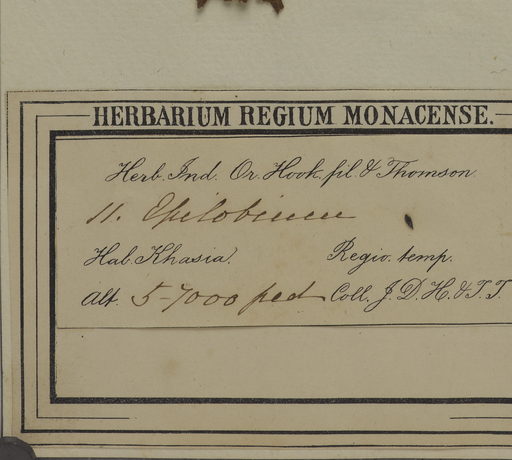 HERBARIUM REGIUM MONACENSE.
Herb. Ind. Or. Hook. fil. & Thomson
11. Epilobium
Hab. Khasia. Regio. temp.
Alt. 5-7000 ped Coll. J. D. H. & T. T.